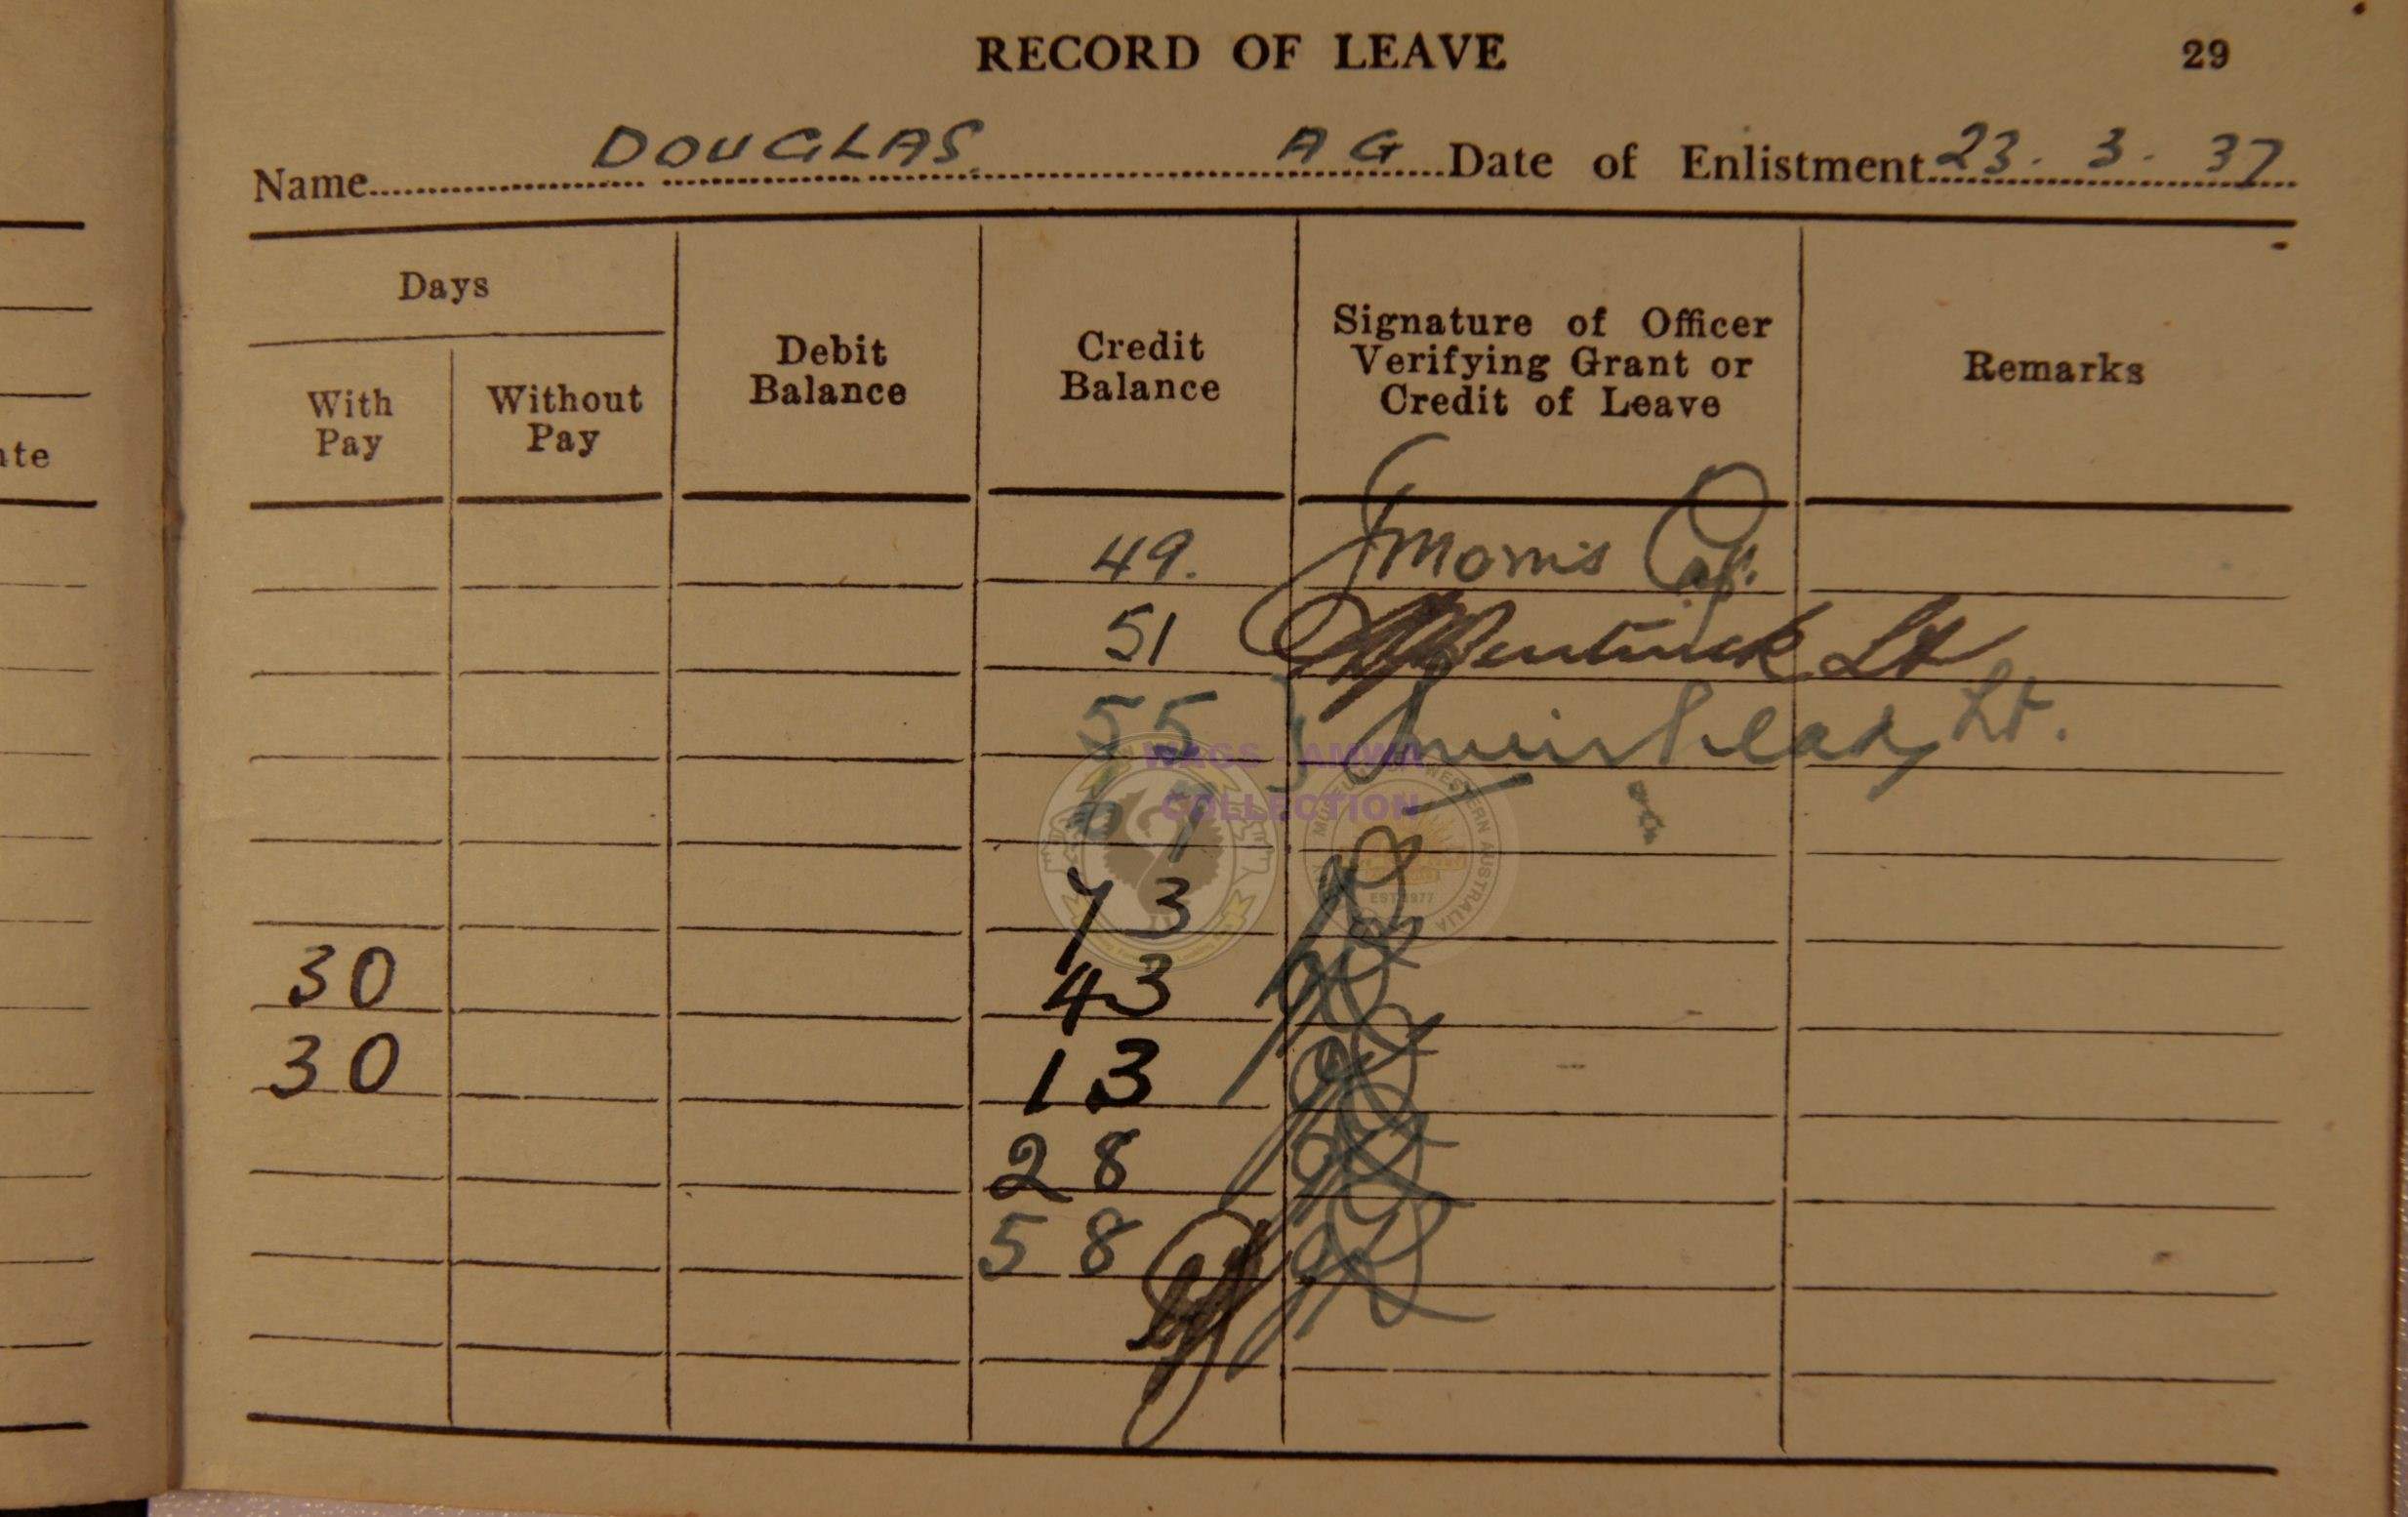 RECORD OF LEAVE 29
Name DOUGLAS A G Date of Enlistment 23. 3. 37
Days
With Pay
Without Pay
Debit Balance
Credit Balance
Signature of Officer Verifying Grant or Credit of Leave
Remarks
49. Morris
51 Lt
55 Muirhead Lt.
73
30 43
30 13
28
58
WAGS - AMWA
COLLECTION
MUSEUM OF WESTERN AUSTRALIA
EST 1977